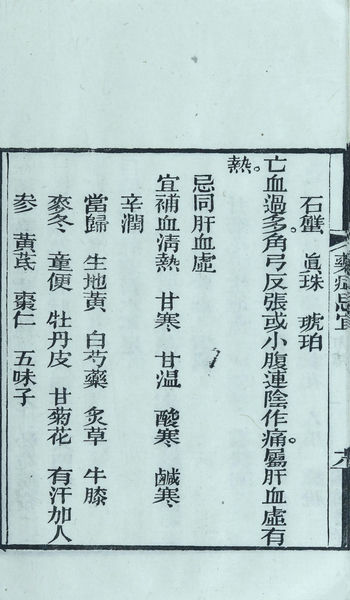 石蠥 眞珠 琥珀
亡血過多。角弓反張或小腹連陰作痛。屬肝血虛有
熱。
忌同肝血虛
宜補血清熱 甘寒 甘溫 酸寒 鹹寒
辛潤
當歸 生地黃 白芍藥 炙草 牛膝
麥冬 童便 牡丹皮 甘菊花 有汗加人
參 黃芪 棗仁 五味子